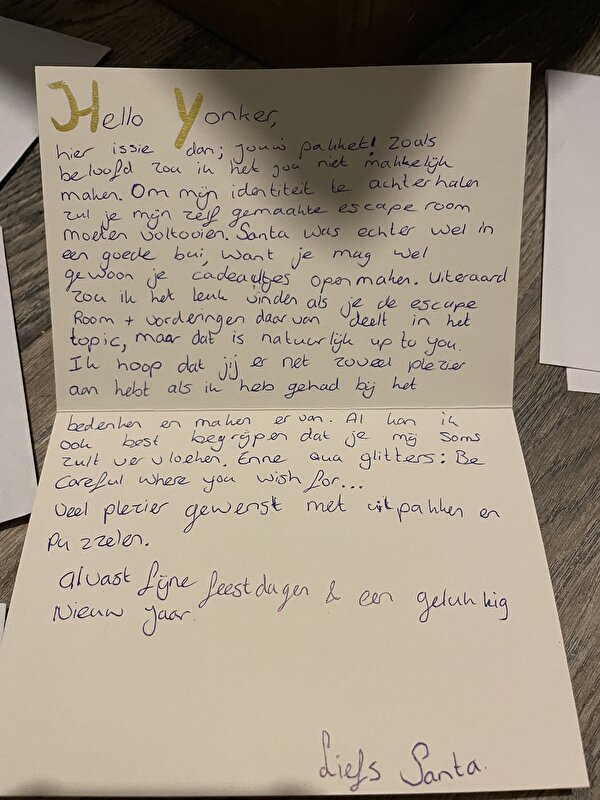 Hello Yonker,
hier issie dan; jouw pakket! Zoals
beloofd zou ik het jou niet makkelijk
maken. Om mijn identiteit te achterhalen
zul je mijn zelf gemaakte escape room
moeten voltooien. Santa was echter wel in
een goede bui, want je mag wel
gewoon je cadeautjes openmaken. Uiteraard
zou ik het leuk vinden als je de escape
Room + vorderingen daarvan deelt in het
topic, maar dat is natuurlijk up to you.
Ik hoop dat jij er net zoveel plezier
aan hebt als ik heb gehad bij het
bedenken en maken ervan. Al kan ik
ook best begrijpen dat je mij soms
zult vervloeken. Enne qua glitters: Be
Careful where you wish for...
Veel plezier gewenst met uitpakken en
puzzelen.
Alvast fijne feestdagen & een gelukkig
Nieuw jaar.
Liefs Santa.